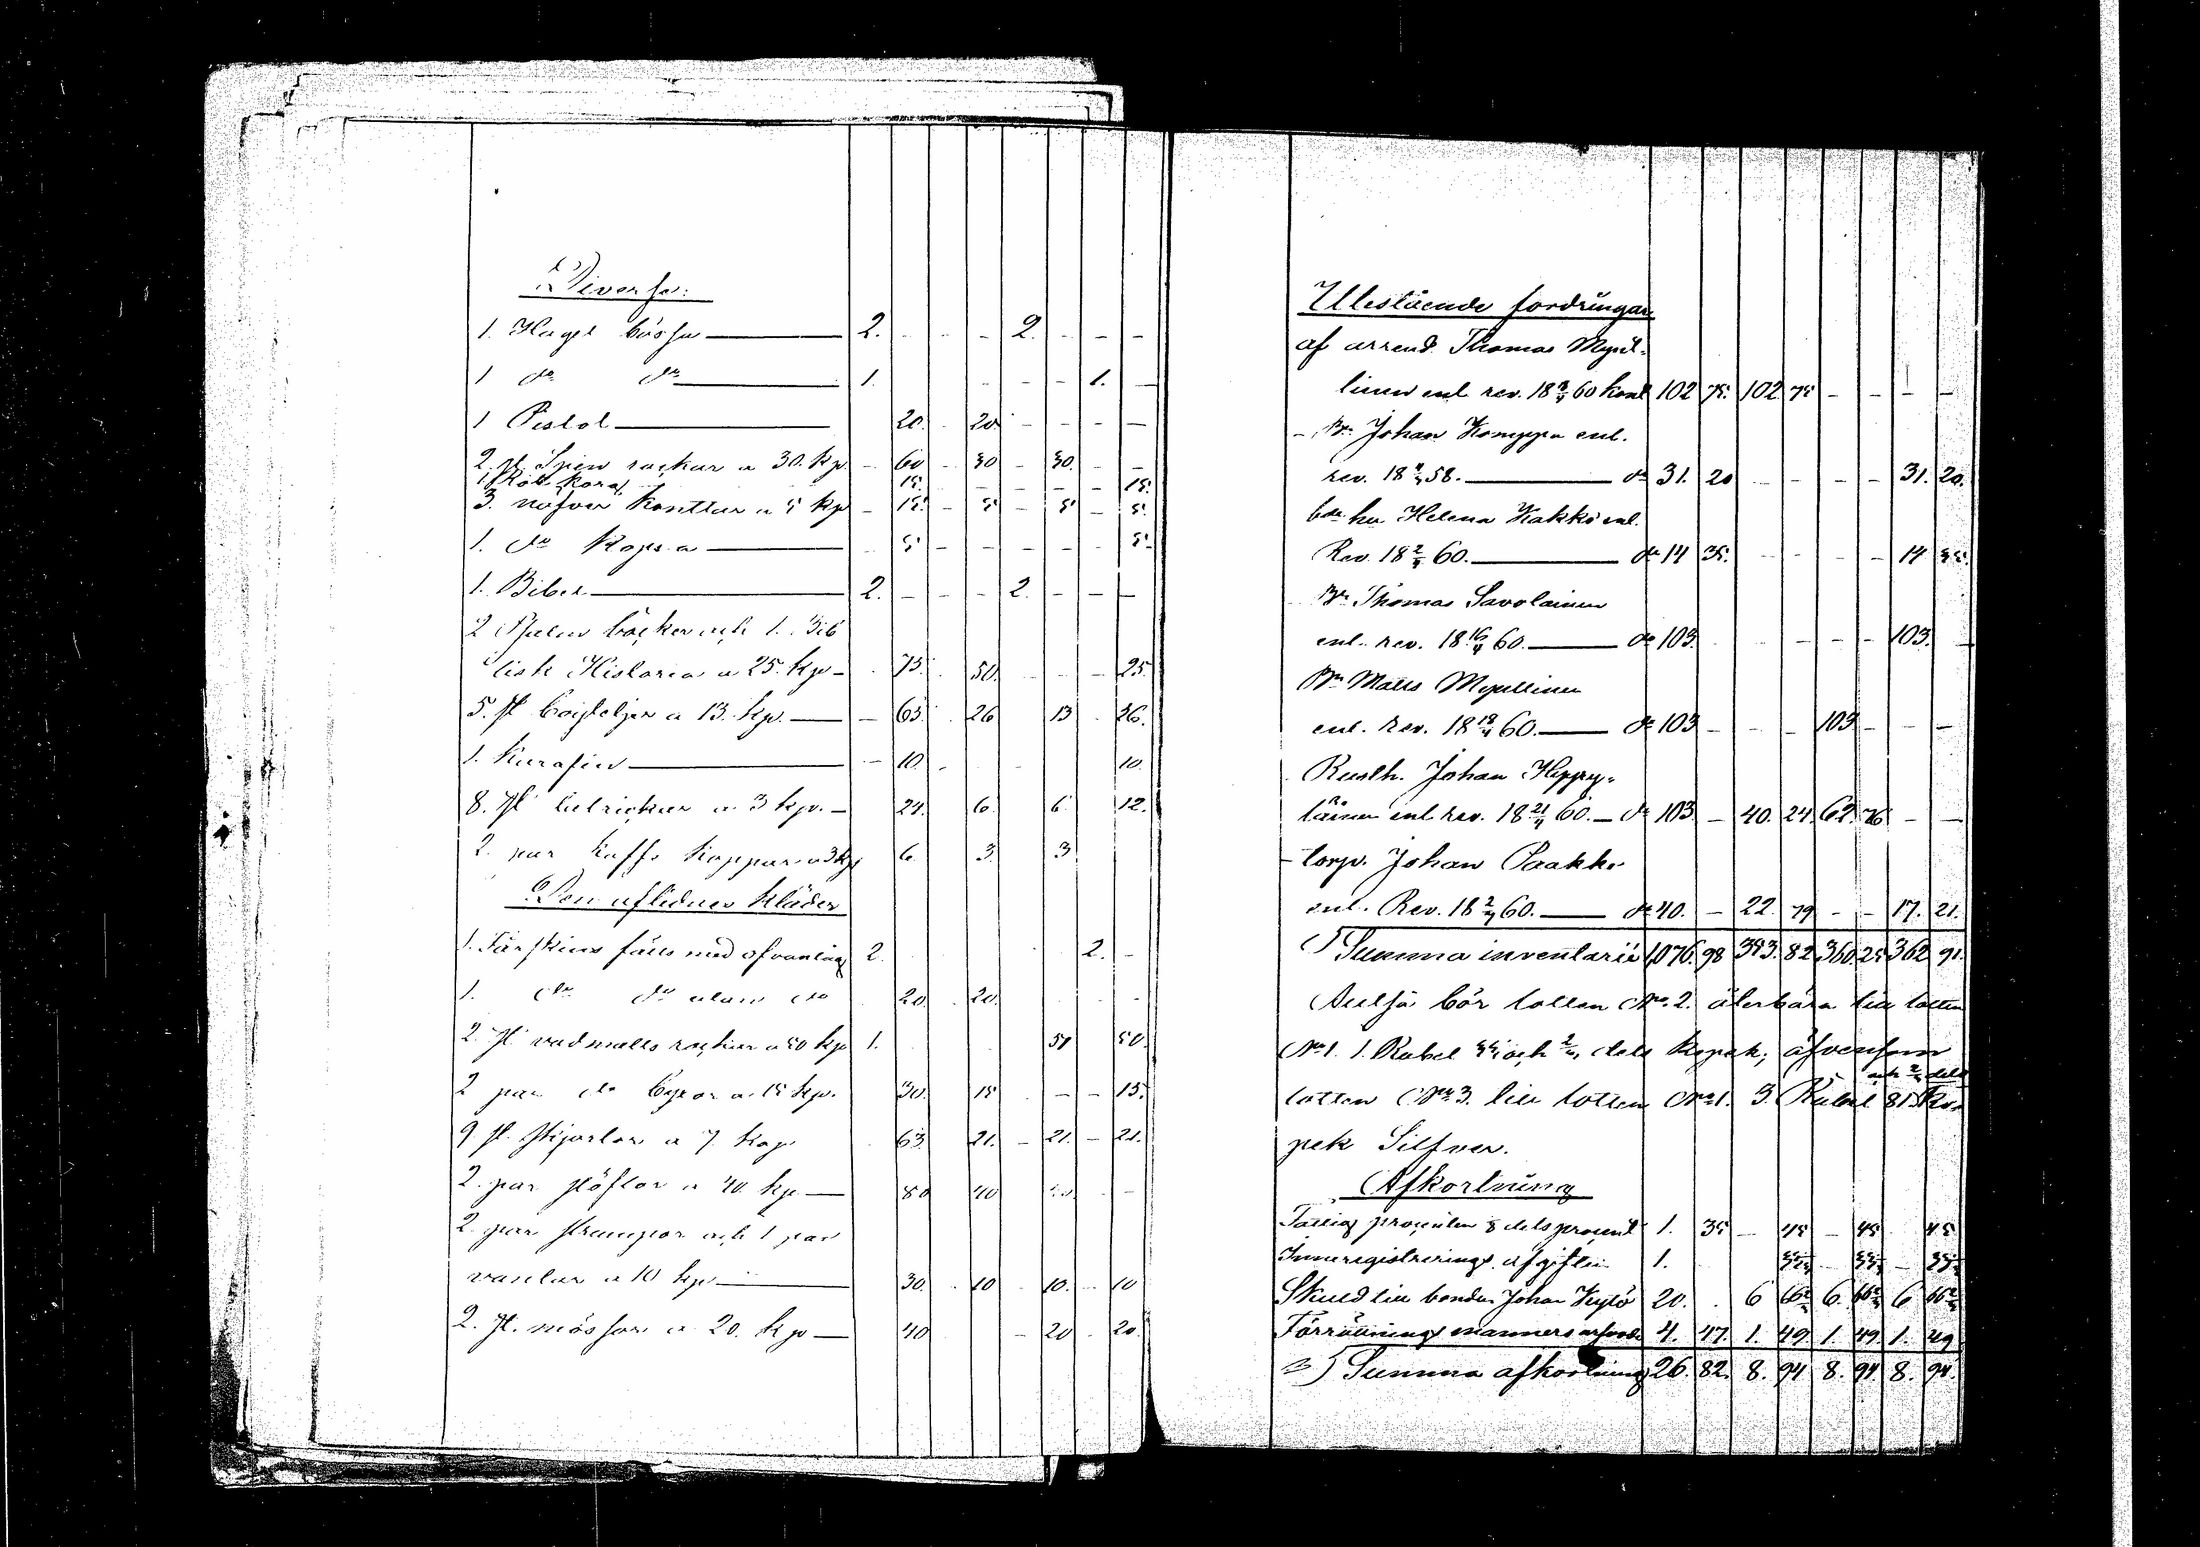 Diverse:
1. Hagel bössa — 2. - - - 2. - - -
1 do do — 1. - - - 1. -
1 Pistol — 20. - 20. - - - -
2 st. Spin rockar a 30. kp. - 60 - 30 - 30. - -
1 Köt korg 15. - - - - 15.
3. näfver konttar a 5 kp - 15. - 5 - 5 - 5.
1. do kopsa — 5 - - - - - 5.
1. Bibel — 2. - - - 2. - - -
2 Psalm böcker och 1. Bib
lisk Historia a 25. kp - 75. 50. - - - 25.
5. st bouteljer a 13. kp. — - 65. 26 13 26.
1. Karafin — - 10. - 10.
8. st talrickar a 3 kp. - 24. 6. 6 12.
2. par kaffe koppar a 3 kp 6. 3. 3
Den aflidnes kläder
1. Fårskins fäll med ofvanlag 2. 2. -
1. do do utan do 20. 20. - -
2. st vadmalls rockar a 50 kp 1. 50 50.
2 par do byxor a 15 kp. 30. 15 - - 15.
9 st. skjortor a 7. kop 63 21. - 21. - 21.
2. par stöflor a 40. kp — 80 40 - -
2. par strumpor och 1 par
vantar a 10 kp — 30. 10 10. 10
2. st. mössor a 20. kp — 40 - 20 20.
Utestående fordringar
af arrend. Thomas Myul-
linen enl. rev. 18 60 kont 102 75. 102 75 - - - -
- Bn Johan Komppa enl.
rev. 18 58. — do 31. 20 - - - - 31. 20.
Helena Kakko enl.
Rev. 18 60. — do 14 35. - - - - 14 35.
Bn Thomas Savolainen
enl. rev. 18 16/4 60. — do 103. - - - 103. -
Bn Matts Myullinen
enl. Rev. 18 18/4 60. — do 103 - - - 103 - - -
Rusth. Johan Hyppy-
läinen enl rev. 18 21/4 60. — do 103. - 40. 24. 62. 76 - -
- torp. Johan Paakko
enl. Rev. 18 60. — do 40. - 22. 79 - - 17. 21.
Summa inventarii 1,076. 98 353. 82 360. 25 362 91.
Altså bör lotten No. 2. återbära till lotten
No 1. 1. Rubel och dels kopek, äfvensom
och 2/3 dels
lotten No 3. till lotten No 1. 3. Rubel 81. Ko-
pek Silfver.
Afkortning
Fattig procenten 8 dels procent 1. 35 - 45 - 45 45
Inneregistrerings afgiften 1. 33 1/3 - 33 1/3 - 33 1/3
Skuld till bonden Johan 20. . 6 66 2/3 6. 66 2/3 6 66 2/3
Förrättnings manners arfvode 4. 47. 1. 49. 1. 49. 1. 49
Summa afkortning 26. 82. 8. 94 8. 94. 8. 94.